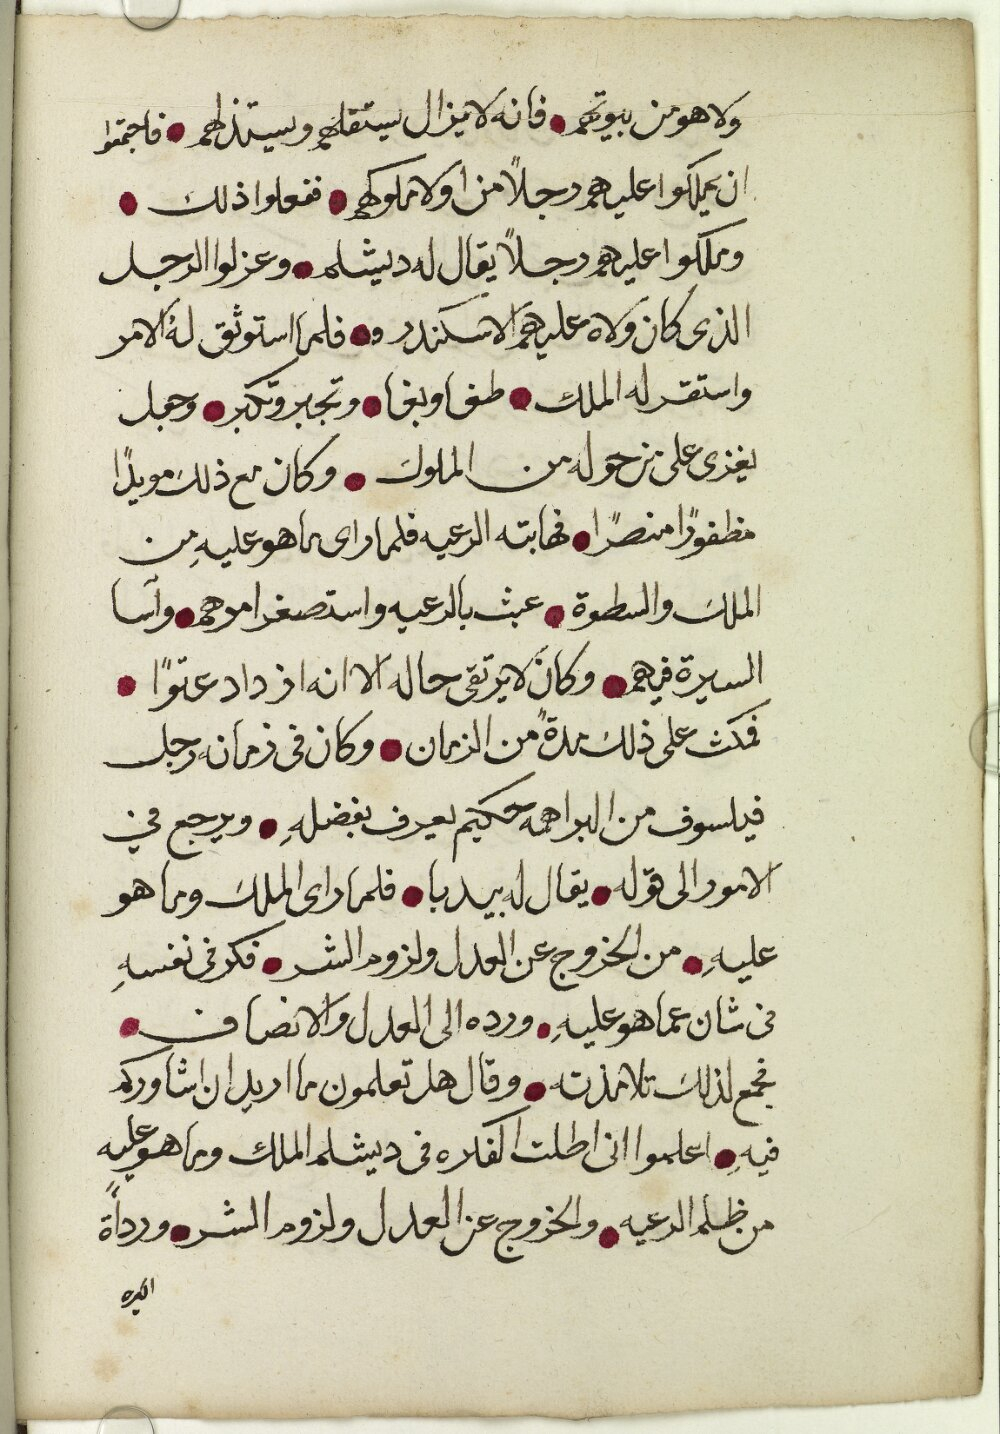 ولا هو من بيوتهم • فانه لا يزال يستقلهم ويستذلهم • فاجمعوا
ان يملكوا عليهم رجلاً من اولاد ملوكهم • ففعلوا ذلك •
وملكوا عليهم رجلاً يقال له ديشلم • وعزلوا الرجل
الذى كان ولاه عليهم الاسكندر و • فلما استوثق له الامر
واستقر له الملك • طغا وبغا • وتجبر وتكبر • وجعل
يغزى على من حوله من الملوك • وكان مع ذلك مويدًا
مظفورًا منصرًا • فهابته الرعيه فلما راى ما هو عليهِ من
الملك والسطوة • عبث بالرعيه واستصغر امرهم • وآسا
السيرة فيهم • وكان لا يرتقى حاله الا انه ازداد عتوًا •
فمكث على ذلك مدةً من الزمان • وكان فى زمانه رجل
فيلسوف من البراهمه حكيم يعرف بفضلهِ • ويرجع في
الامور الى قوله • يقال له بيدبا • فلما راى الملك وما هو
عليهِ • من الخروج عن العدل ولزوم الشر • فكر فى نفسهِ
فى شان عما هو عليهِ • ورده الى العدل والانصاف •
فجمع لذلك تلامذته • وقال هل تعلمون ما اريد ان اشاوركم
فيهِ • اعلموا انى اطلت الفكره فى ديشلم الملك وما هو عليه
من ظلم الرعيه • والخروج عن العدل ولزوم الشر • ورداًة